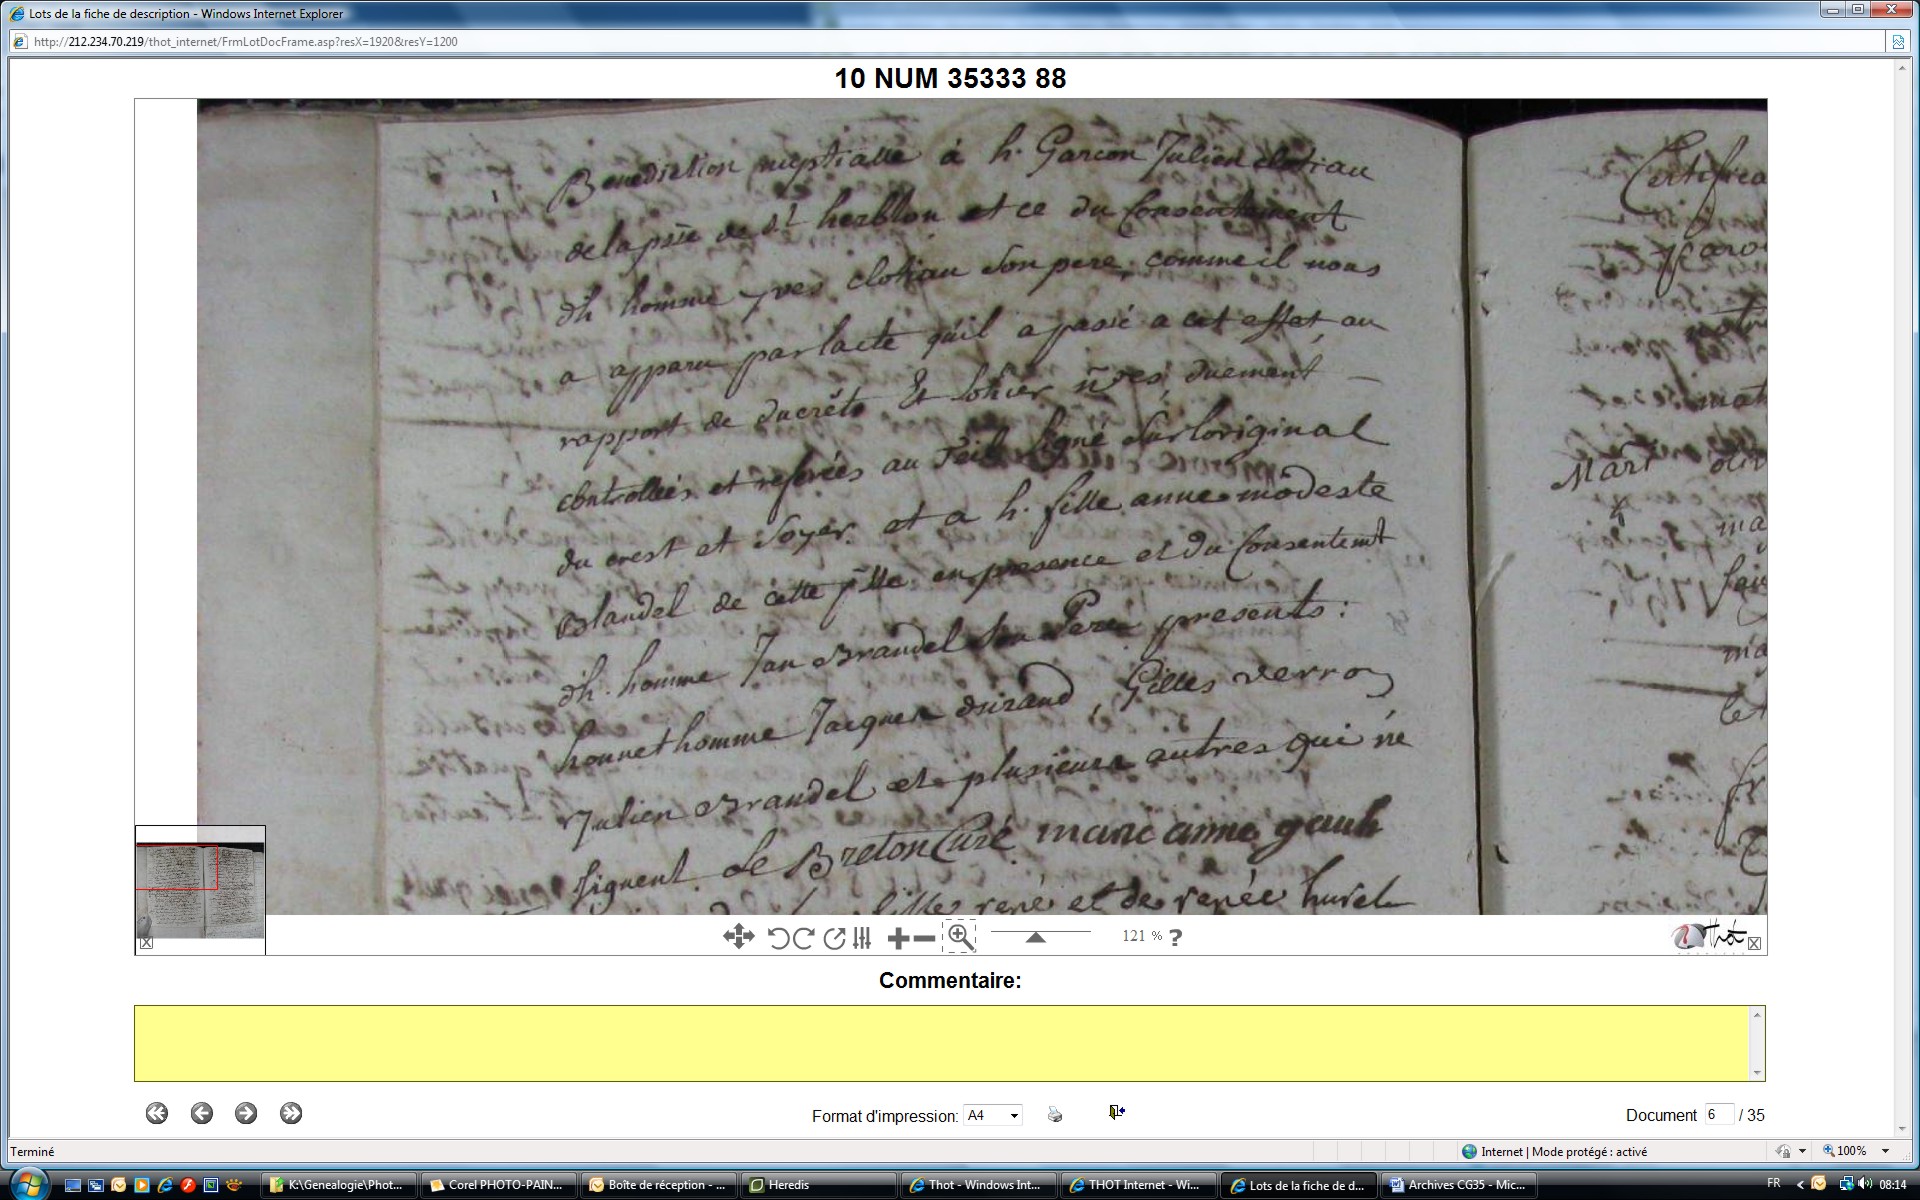 Lots de la fiche de description - Windows Internet Explorer
http://212.234.70.219/thot_internet/FrmLotDocFrame.asp?resX=1920&resY=1200
10 NUM 35333 88
Benediction nuptialle à h. Garcon Julien clotiau
de la psse de St herblon et ce du Consentement
d'h homme yves clotiau Son pere, comme il nous
a apparu par lacte quil a passé a cet effet au
rapport de ducrest Et Sohier nres, duement
controllées et referées au Signé Sur loriginal
du crest et Soyer. et a h. fille anne modeste
Blandel de cette psse en presence et du Consentemt
d'h. homme Jan Brandel Son Pere presents:
honnet homme Jacques durand, Gilles verron
Julien Brandel et plusieurs autres qui ne
signent. Le Breton Curé. marie anne gault
fille rené et de renée hurel
Certifica
paroi
mat
Mart
ma
fai
ma
let
fr
121 % ?
Thot
Commentaire:
Format d'impression: A4
Document 6 / 35
Terminé
Internet | Mode protégé : activé
100%
K:\Genealogie\Phot...
Corel PHOTO-PAIN...
Boîte de réception - ...
Heredis
Thot - Windows Int...
THOT Internet - Wi...
Lots de la fiche de d...
Archives CG35 - Mic...
FR
08:14